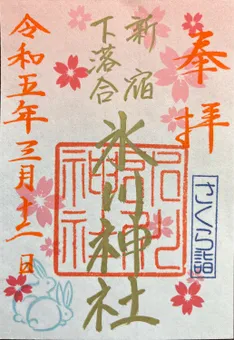 奉拝
さくら詣
新宿
下落合
氷川神社
令和五年三月十二日